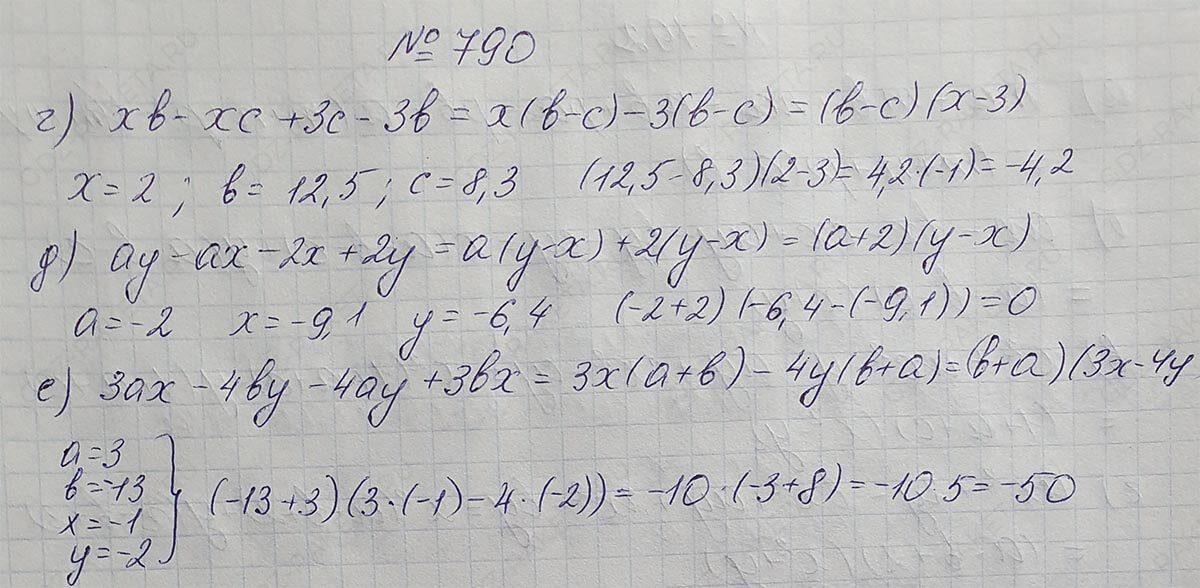 № 790
г) xв - xc + 3c - 3в = x(в-c) - 3(в-c) = (в-c)(x-3)
x = 2; в = 12,5; c = 8,3 (12,5-8,3)(2-3) = 4,2·(-1) = -4,2
д) ay - ax - 2x + 2y = a(y-x) + 2(y-x) = (a+2)(y-x)
a = -2 x = -9,1 y = -6,4 (-2+2)(-6,4-(-9,1)) = 0
е) 3ax - 4вy - 4ay + 3вx = 3x(a+в) - 4y(в+a) = (в+a)(3x-4y
a = 3
в = -13
x = -1
y = -2
(-13+3)(3·(-1) - 4·(-2)) = -10·(-3+8) = -10·5 = -50